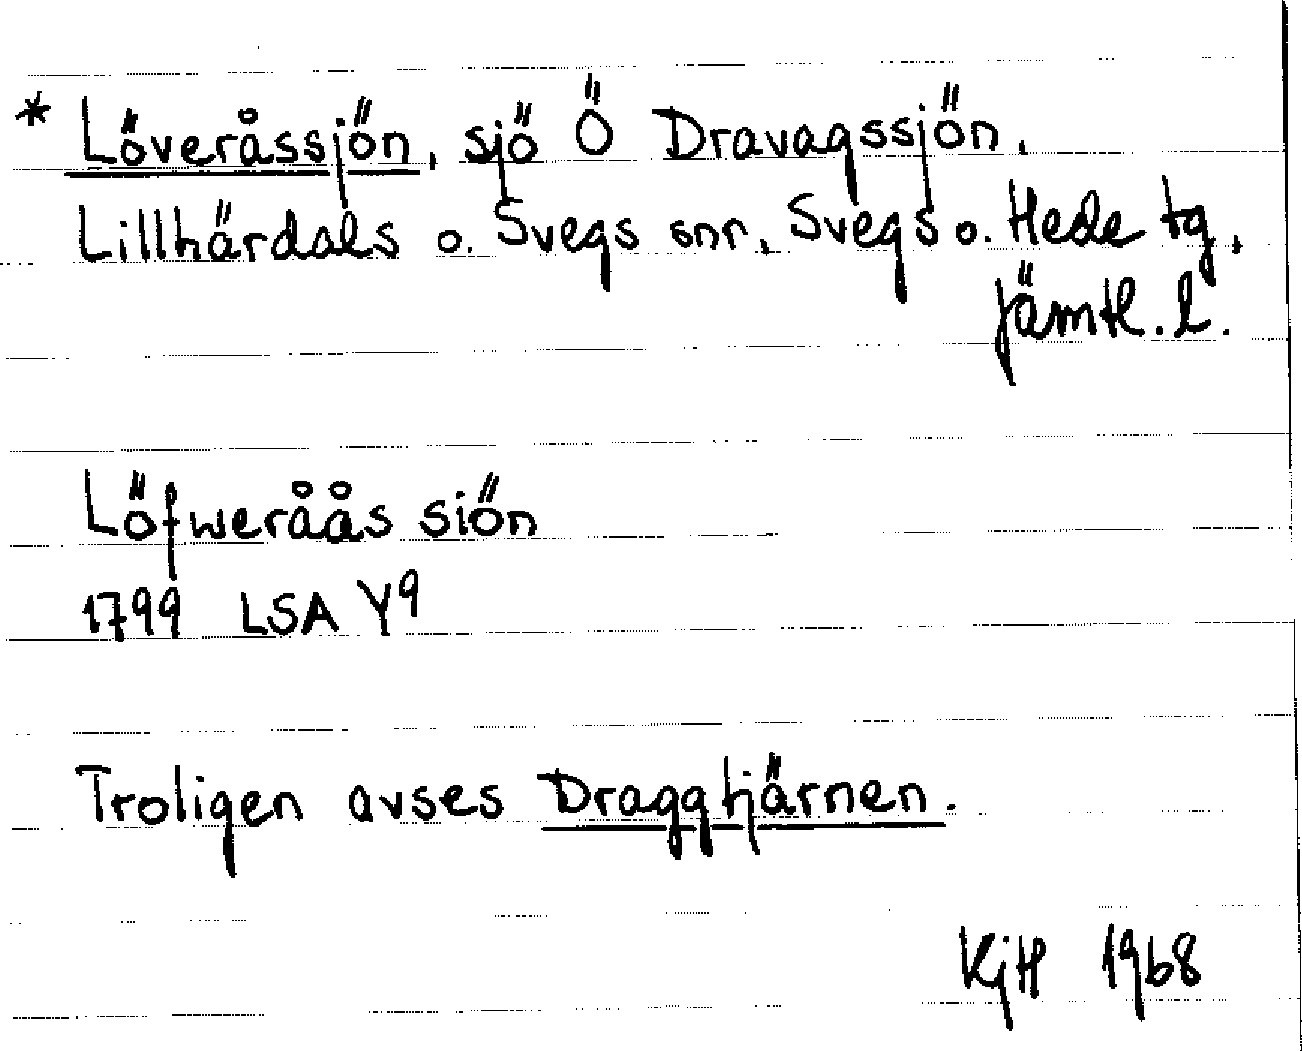 * Löveråssjön, sjö Ö Dravagssjön,
Lillhärdals o. Svegs snr, Svegs o. Hede tg,
Jämtl. l.
Löfweråås siön
1799 LSA Y9
Troligen avses Draggtjärnen.
KjH 1968